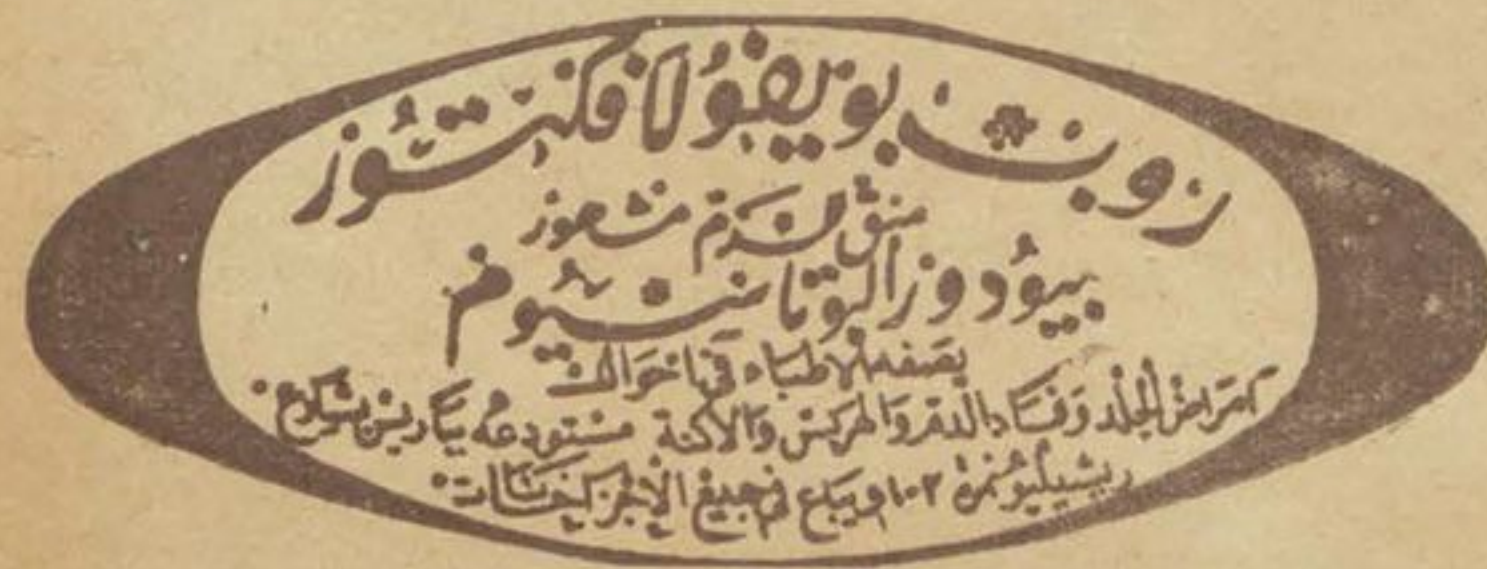 روب بويفولا فكتور
منق للدم مشهور
بيودور البوتاسيوم
يصفه الاطباء في احوال
امراض الجلد وفساد الدم والمركبش والاكنة مستودعه بباريس بشارع
ريشيليو نمرة ١٠٢ ويباع في جميع الاجزاخانات